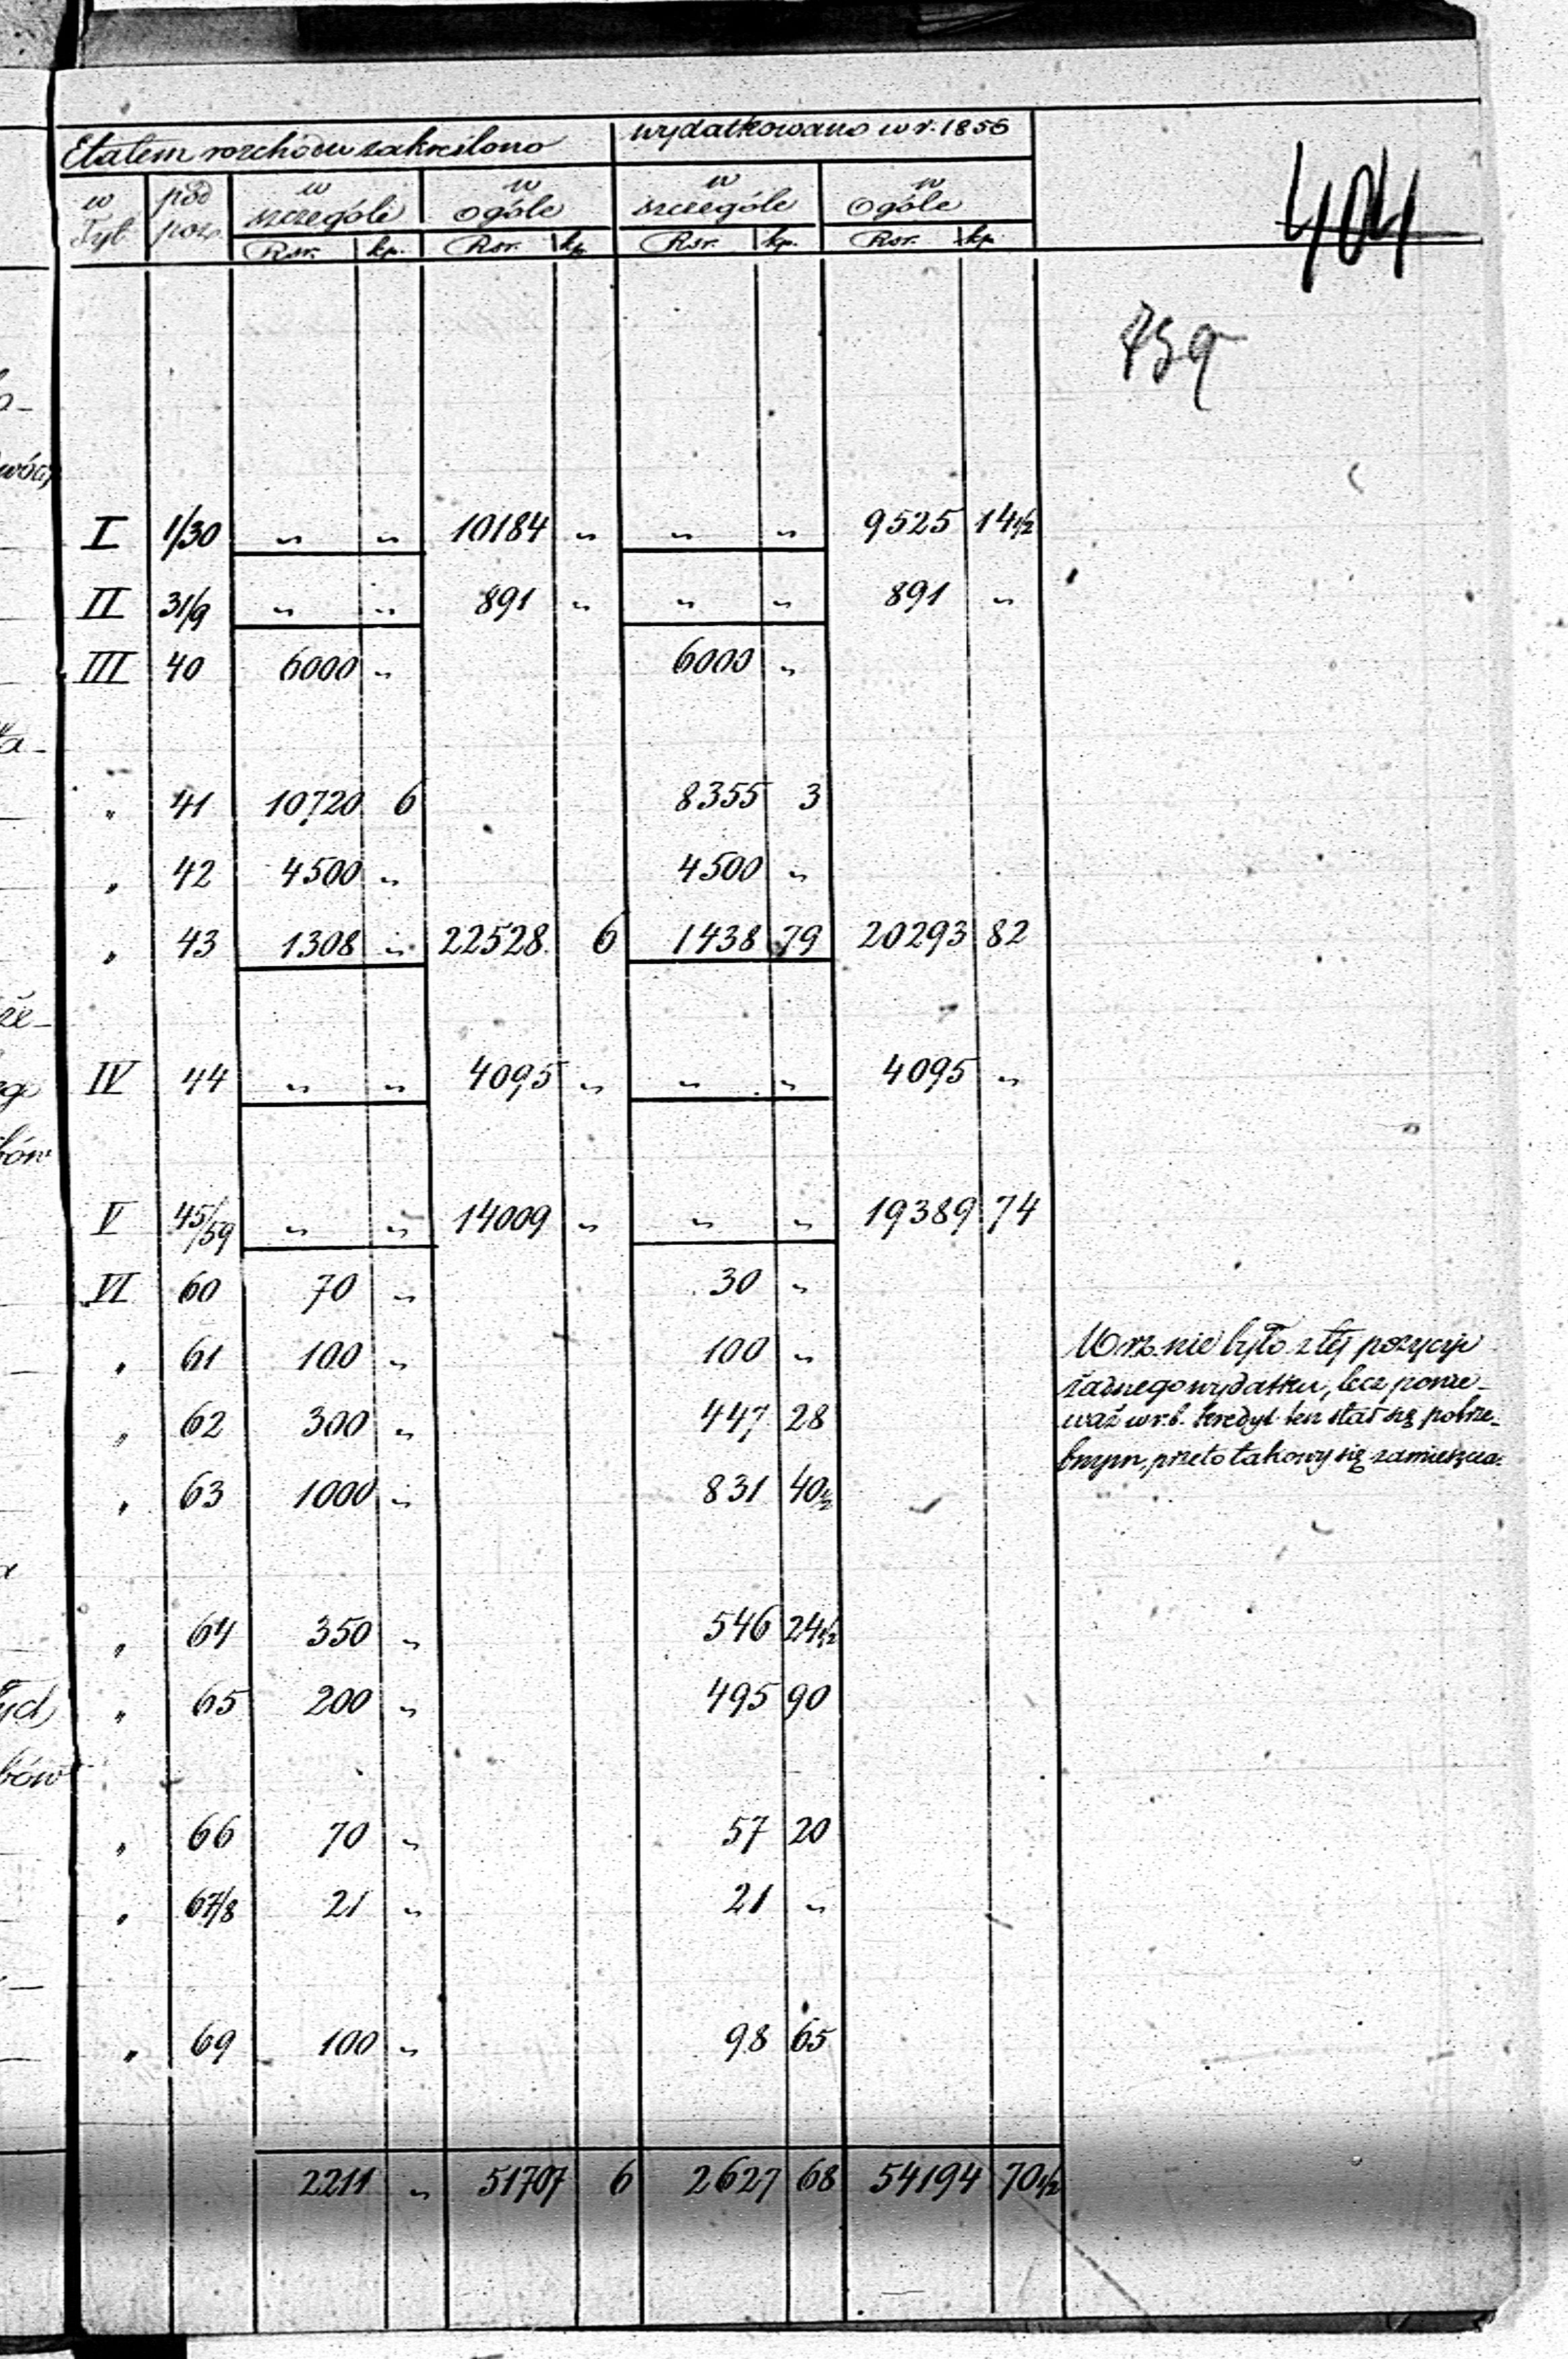 Etatem rozchodu zakreślono wydatkowano w r. 1856
w Tyt. pod poz. w szczególe w ogóle w szczególe w ogóle
Rsr. kp. Rsr. kp. Rsr. kp. Rsr. kp.
404
739
I 1/30 " " 10184 " " " 9525 14 1/2
II 31/9 " " 891 " " " 891 "
III 40 6000 " 6000 "
" 41 10720 6 8355 3
" 42 4500 " 4500 "
" 43 1308 " 22528 6 1438 79 20293 82
IV 44 " " 4095 " " " 4095 "
V 45/59 " " 14009 " " " 19389 74
VI 60 70 " 30 "
" 61 100 " 100 "
" 62 300 " 447 28
" 63 1000 " 831 40 1/2
" 64 350 " 546 24 1/2
" 65 200 " 495 90
" 66 70 " 57 20
" 67/8 21 " 21 "
" 69 100 " 98 65
2211 " 51707 6 2627 68 54194 70 1/2
nie było z téj pozycyi
żadnego wydatku, lecz ponie-
waż w r. b. kredyt ten stał się potrze-
bnym, przeto takowy się zamieszcza.